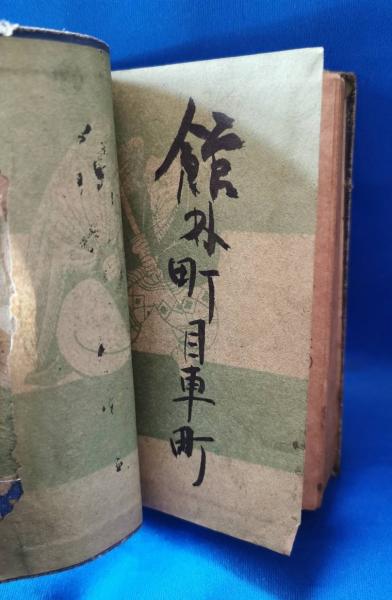 館林町目車町